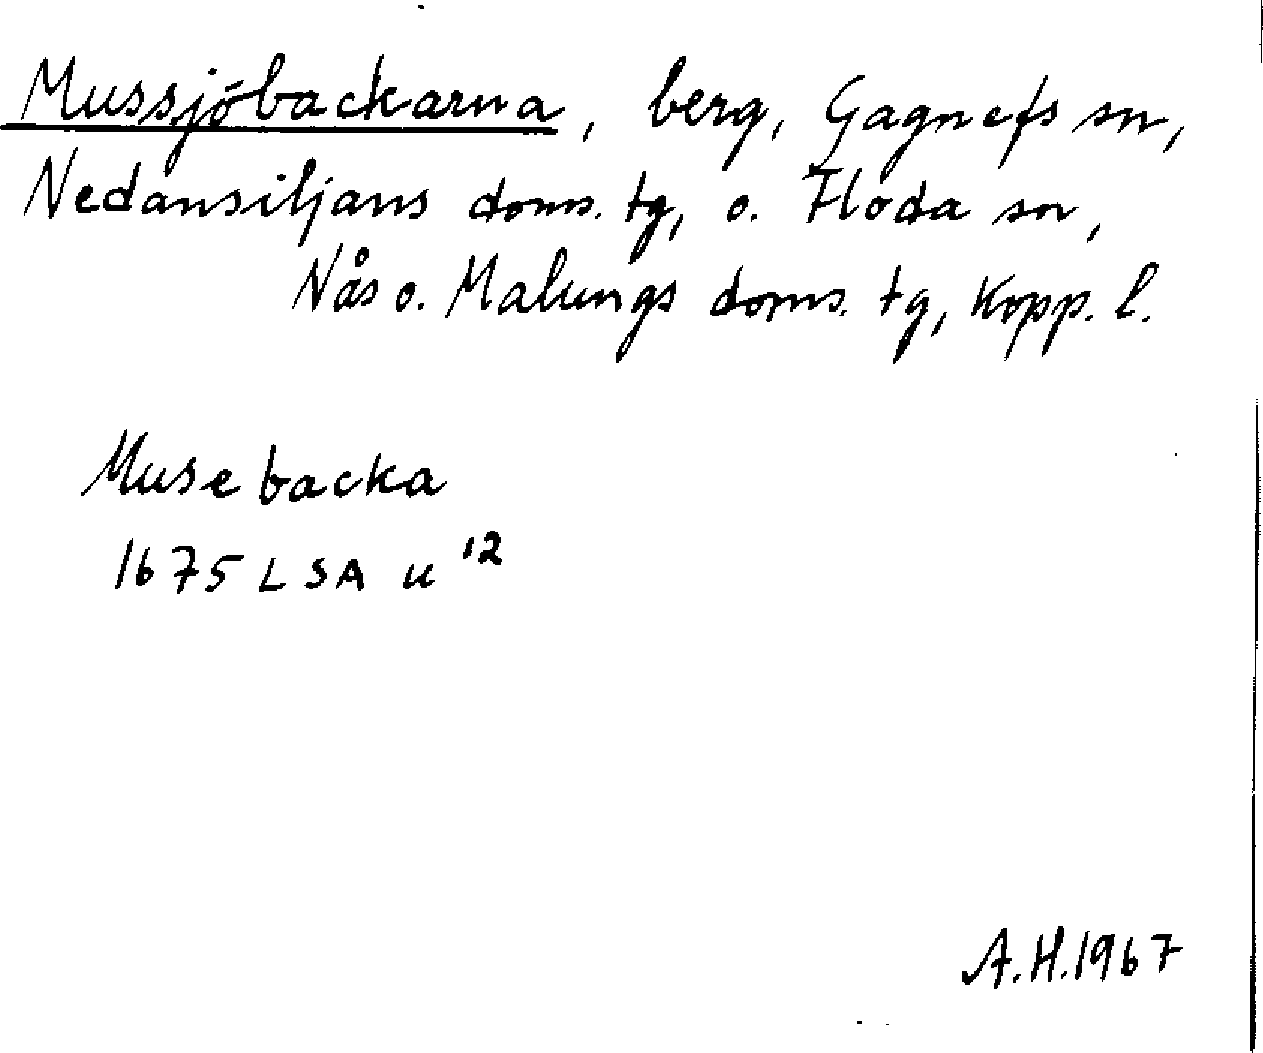 Mussjöbackarna, berg, Gagnefs sn,
Nedansiljans doms. tg, o. Floda sn,
Nås o. Malungs doms. tg, Kopp. l.
Musebacka
1675 LSA u '2
A.H.1967